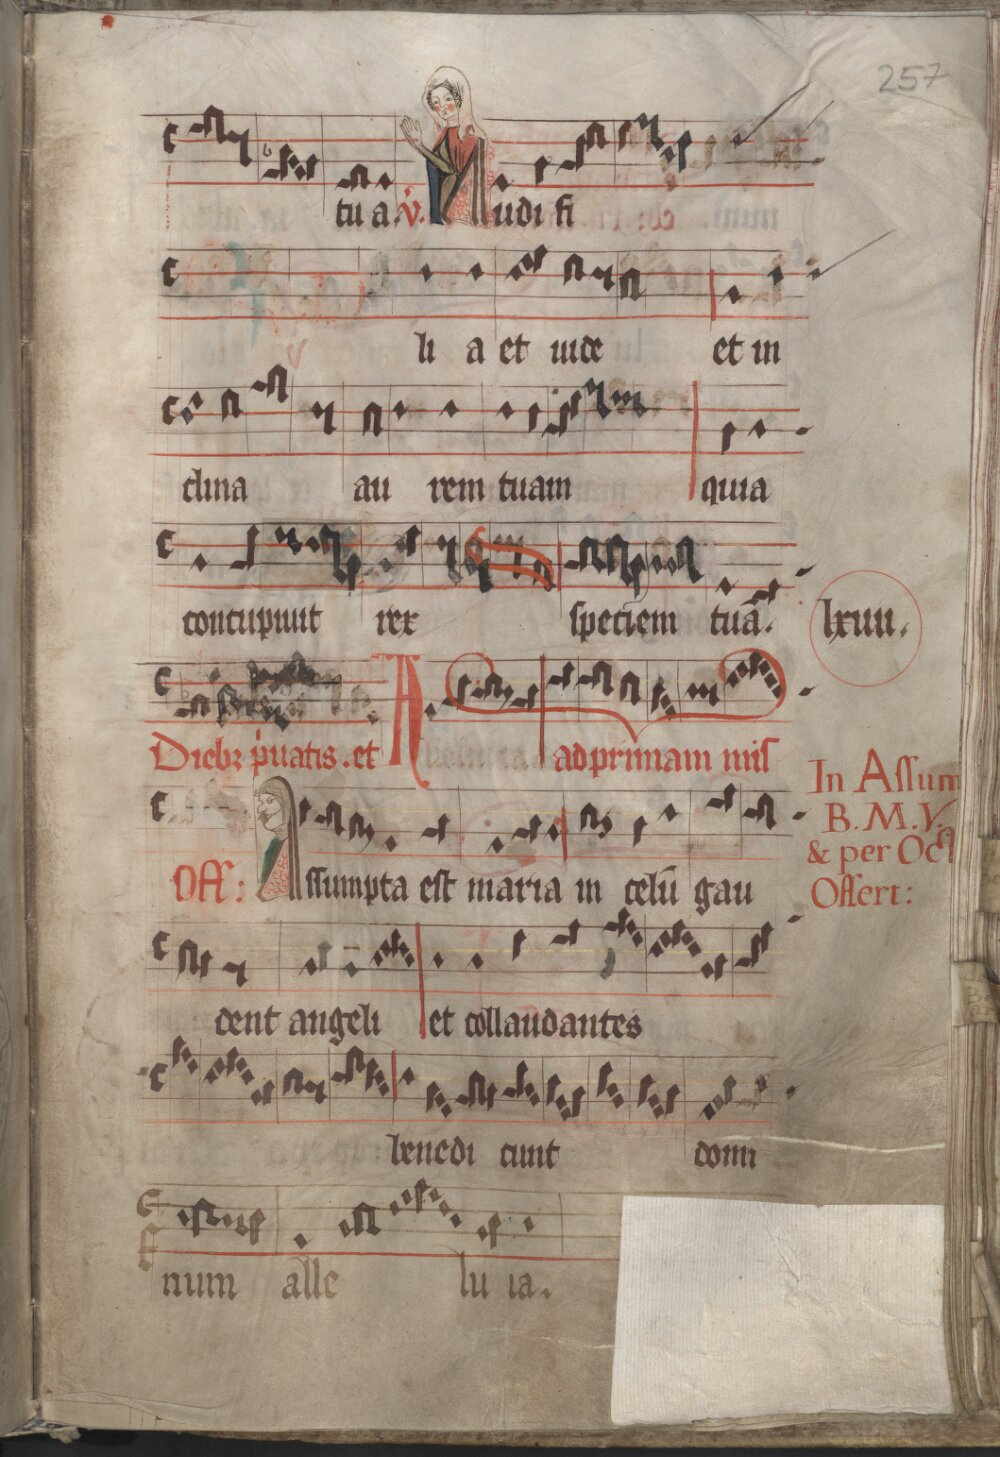 257
tu a. v. Audi fi
li a et uide et in
clina au rem tuam quia
concupiuit rex speciem tuā.
lxiiii.
Diebꝫ p̍uatis. et A ad primam mis
In Assum
B. M. V.
& per Oct
Offert:
Off: Assumpta est maria in celū gau
dent angeli et collaudantes
benedi cunt domi
num alle lu ia.